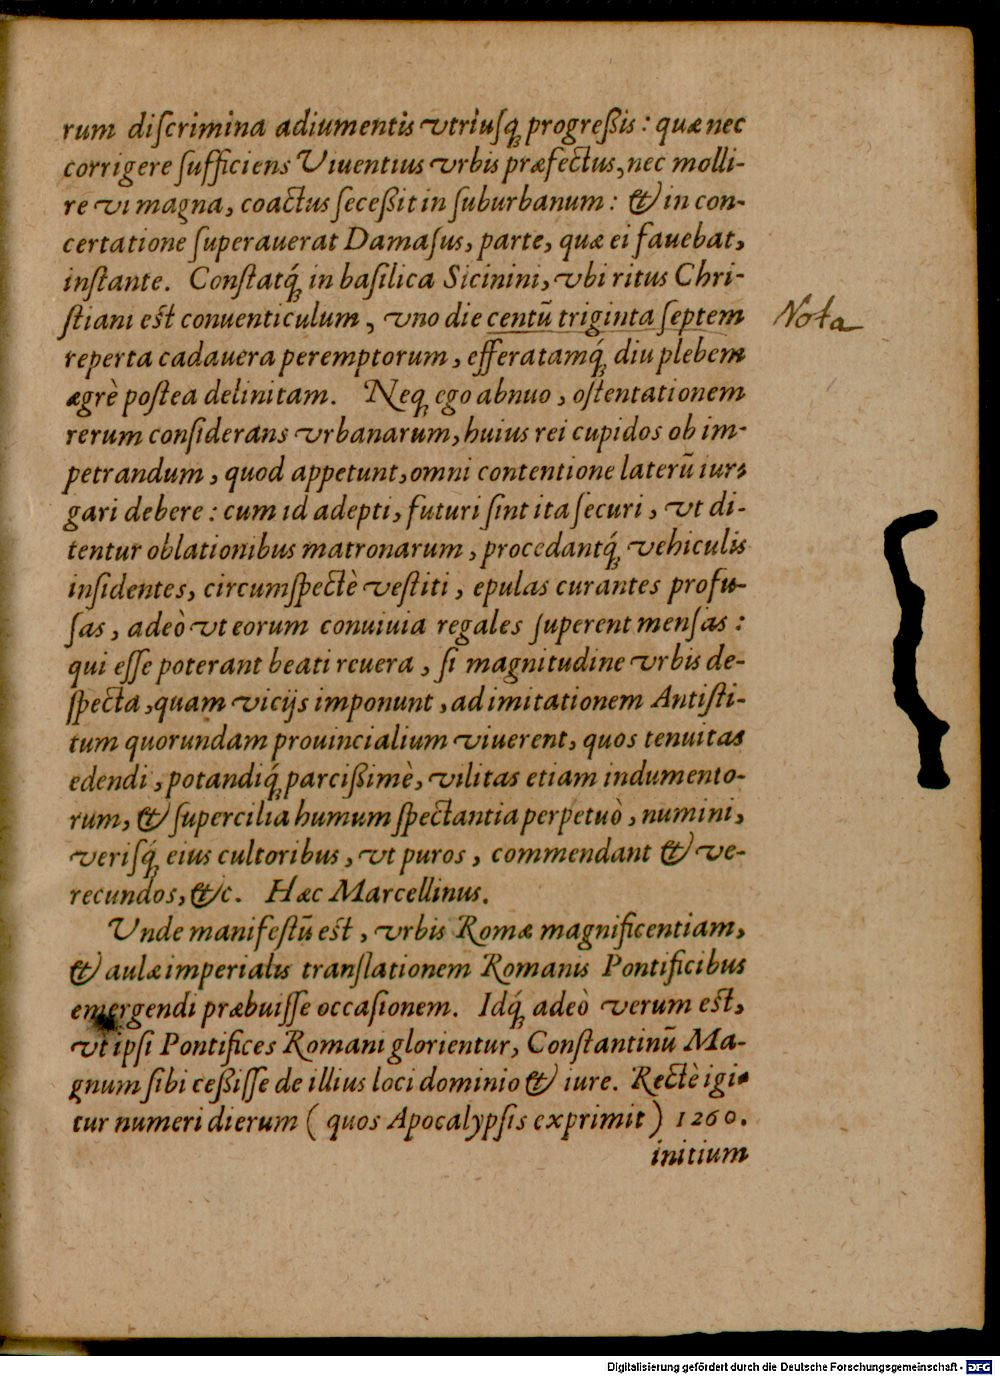 rum diſcrimina adiumentis vtriuſq́ꝫ progreßis: quæ nec
corrigere ſufficiens Viuentius vrbis præfectus, nec molli-
re vi magna, coactus ſeceßit in ſuburbanum: & in con-
certatione ſuperauerat Damaſus, parte, quæ ei fauebat,
inſtante. Conſtatq́ꝫ in baſilica Sicinini, vbi ritus Chri-
ſtiani eſt conuenticulum, vno die centũ triginta ſeptem
Nota
reperta cadauera peremptorum, efferatamq́ꝫ diu plebem
ægrè poſtea delinitam. Neqꝫ ego abnuo, oſtentationem
rerum conſiderans vrbanarum, huius rei cupidos ob im-
petrandum, quod appetunt, omni contentione laterũ iur-
gari debere: cum id adepti, futuri ſint ita ſecuri, vt di-
tentur oblationibus matronarum, procedantq́ꝫ vehiculis
inſidentes, circumſpectè veſtiti, epulas curantes profu-
ſas, adeò vt eorum conuiuia regales ſuperent menſas:
qui eſſe poterant beati reuera, ſi magnitudine vrbis de-
ſpecta, quam vicijs imponunt, ad imitationem Antiſti-
tum quorundam prouincialium viuerent, quos tenuitas
edendi, potandiq́ꝫ parcißimè, vilitas etiam indumento-
rum, & ſupercilia humum ſpectantia perpetuò, numini,
veriſq́ꝫ eius cultoribus, vt puros, commendant & ve-
recundos, &c. Hæc Marcellinus.
Unde manifeſtũ eſt, vrbis Romæ magnificentiam,
& aulæ imperialis tranſlationem Romanis Pontificibus
emergendi præbuiſſe occaſionem. Idq́ꝫ adeò verum eſt,
vt ipſi Pontifices Romani glorientur, Conſtantinũ Ma-
gnum ſibi ceßiſſe de illius loci dominio & iure. Rectè igi-
tur numeri dierum ( quos Apocalypſis exprimit ) 1260.
initium
Digitalisierung gefördert durch die Deutsche Forschungsgemeinschaft - DFG